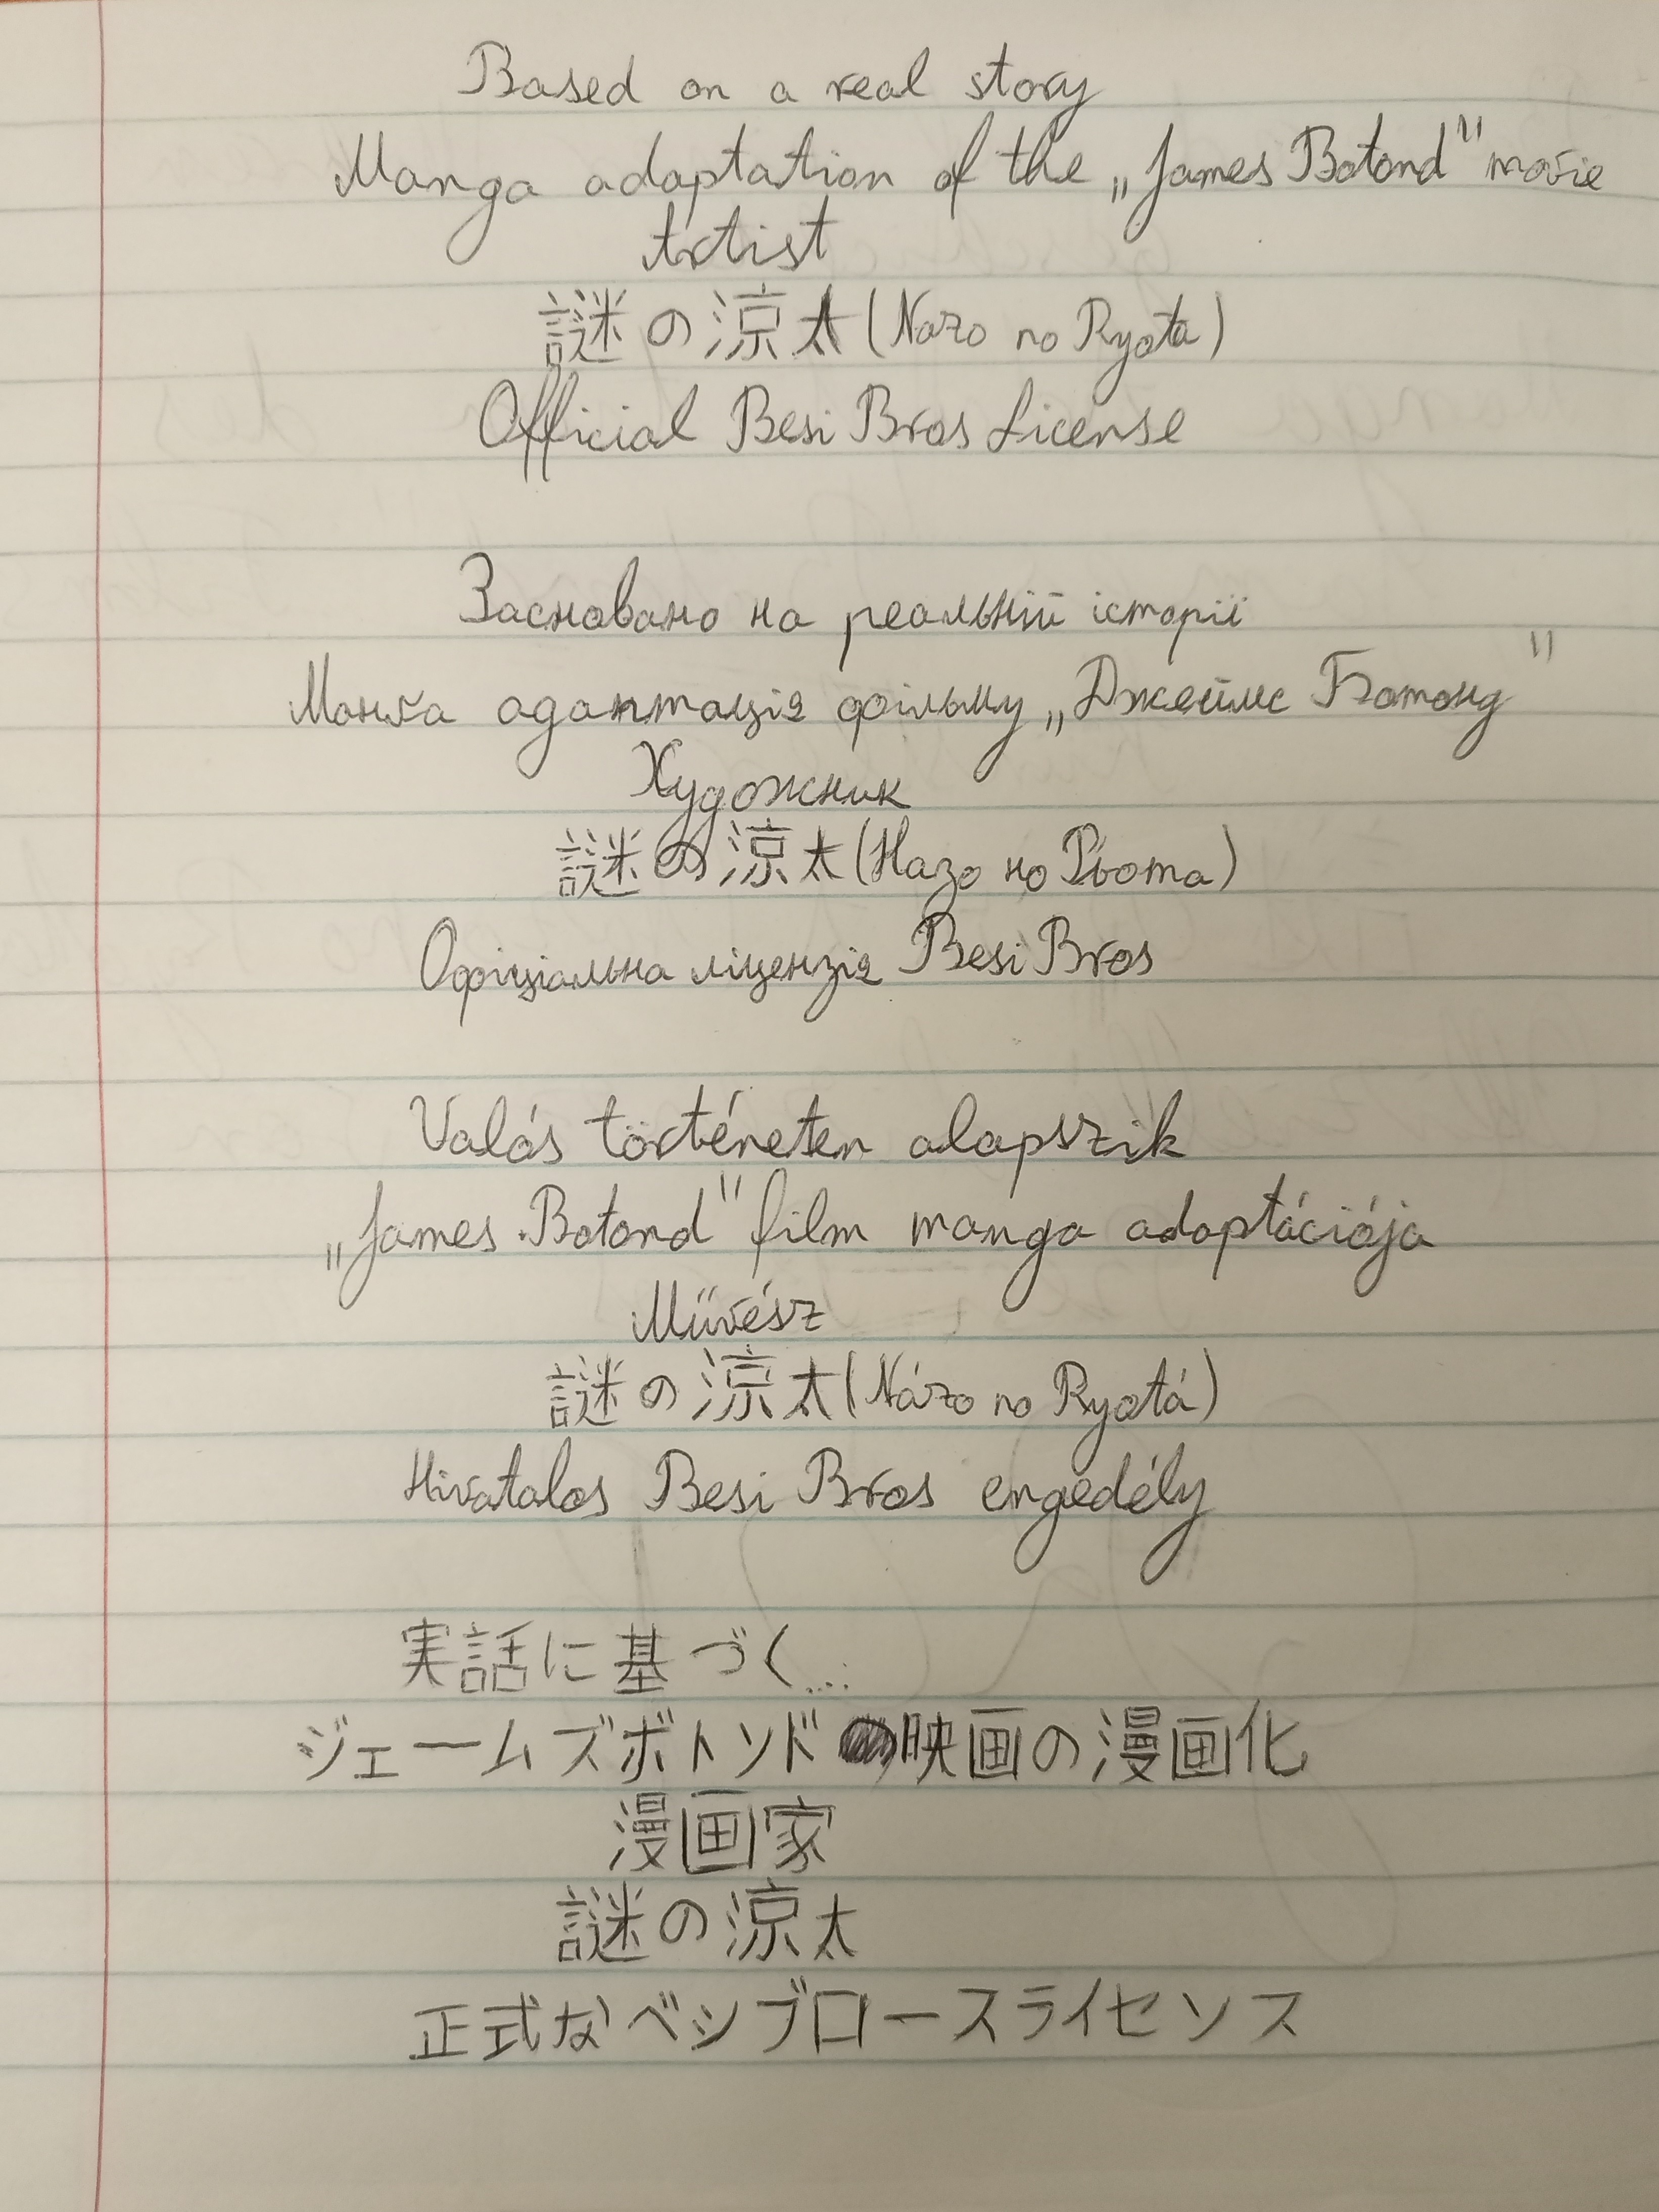 Based on a real story
Manga adaptation of the „James Botond" movie
Artist
謎の涼太(Nazo no Ryota)
Official Besi Bros License
Засновано на реальній історії
Манґа адаптація фільму „Джеймс Ботонд"
Художник
謎の涼太(Назо но Рьота)
Офіціальна ліцензія Besi Bros
Valós történeten alapszik
„James Botond" film manga adaptációja
Művész
謎の涼太(Názo no Ryotá)
Hivatalos Besi Bros engedély
実話に基づく...
ジェームズボトンド映画の漫画化
漫画家
謎の涼太
正式なベシブロースライセンス